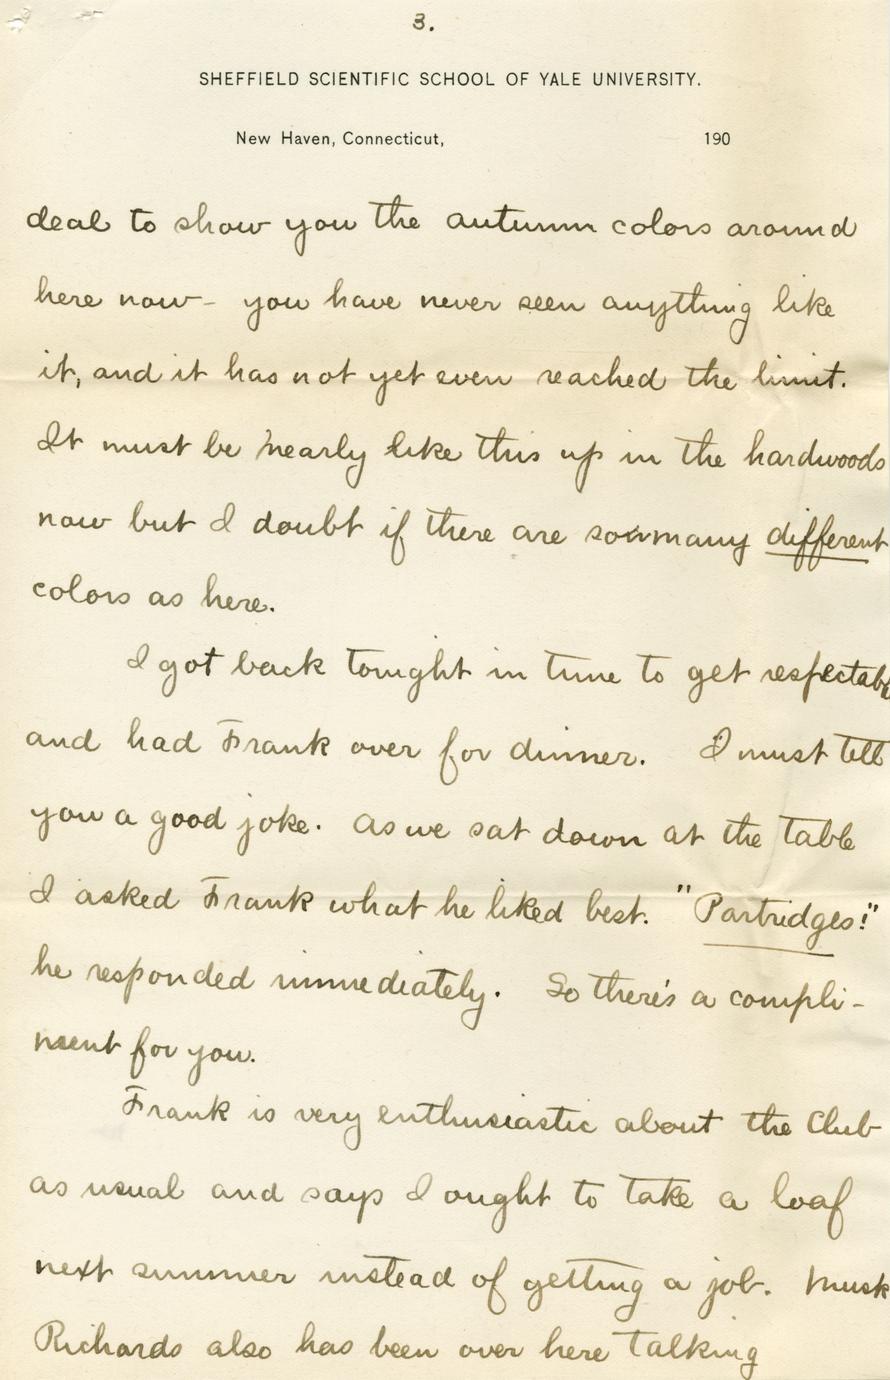 3.
SHEFFIELD SCIENTIFIC SCHOOL OF YALE UNIVERSITY.
New Haven, Connecticut, 190
deal to show you the autumn colors around
here now - you have never seen anything like
it, and it has not yet even reached the limit.
It must be nearly like this up in the hardwoods
now but I doubt if there are so many different
colors as here.
I got back tonight in time to get respectabl
and had Frank over for dinner. I must tell
you a good joke. As we sat down at the table
I asked Frank what he liked best. "Partridges!"
he responded immediately. So there's a compli-
ment for you.
Frank is very enthusiastic about the Club
as usual and says I ought to take a loaf
next summer instead of getting a job. Musk
Richards also has been over here talking